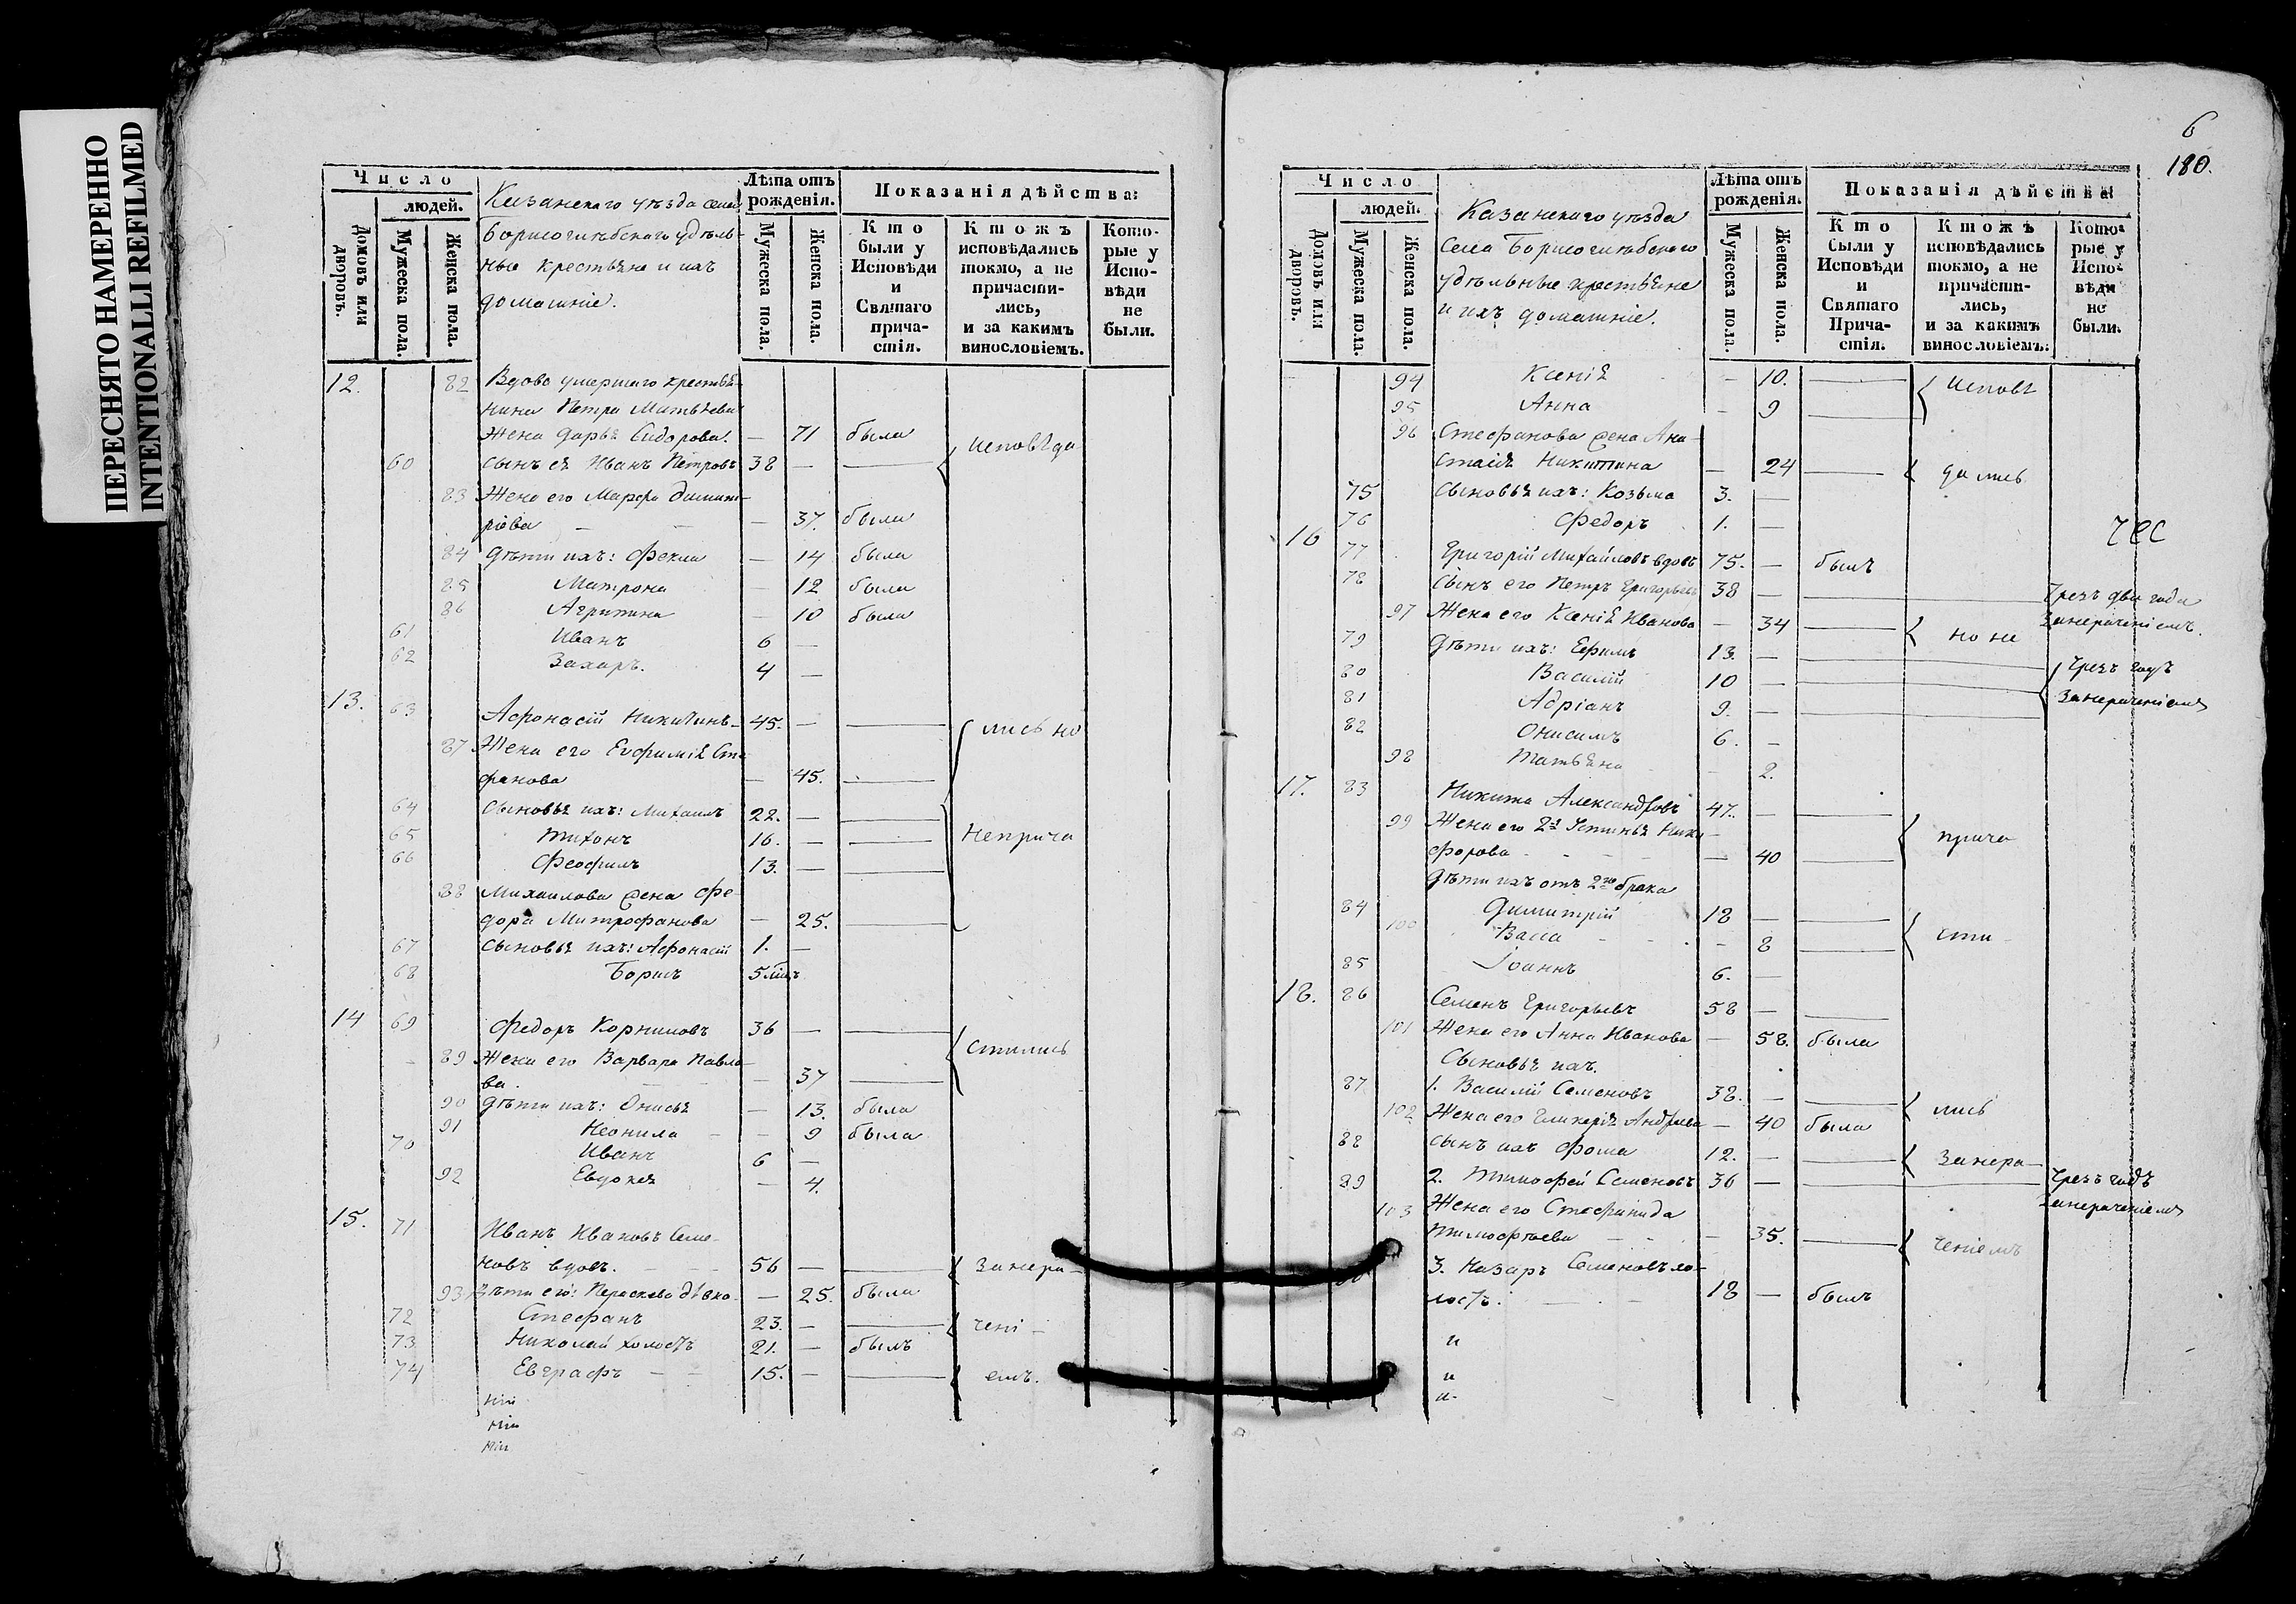 ПЕРЕСНЯТО НАМЕРЕННО
INTENTIONALLI REFILMED
Число
людей.
Домовъ или дворовъ.
Мужеска пола.
Женска пола.
Казанскаго уѣзда села
Борисоглѣбскаго удѣль-
ные крестьяне и ихъ
домашніе.
Лѣта отъ рожденія.
Мужеска пола.
Женска пола.
Показанія дѣйства:
Кто были у Исповѣди и Святаго причастія.
Ктожъ исповѣдались токмо, а не причастились, и за какимъ винословіемъ.
Которые у Исповѣди не были.
12. 82 Вдова умершаго крестья-
нина Петра Матвѣева
Жена Дарья Сидорова. — 71 была
Исповѣда
60 сынъ ея Иванъ Петровъ 38 —
83 Жена его Марфа Димит-
ріева — 37. была
84 дѣти ихъ: Фекла — 14 была
85 Матрона — 12 была
86 Агрипина — 10 была
61 Иванъ 6 —
62 Захаръ. 4 —
13. 63 Афонасій Никитинъ 45. —
лись но
87 Жена его Евфимія Сте-
фанова — 45.
64 сыновья ихъ: Михаилъ 22. —
65 Тихонъ 16. —
Неприча
66 Феофилъ 13. —
88 Михаилова жена Фе
дора Митрофанова — 25.
67 сыновья ихъ: Афонасій 1. —
68 Борисъ 5 мѣц.
14 69 Федоръ Корниловъ 36 —
стились
89 Жена его Варвара Павло-
ва. — 37
90 дѣти ихъ: Онисья — 13. была
91 Неонила — 9 была
70 Иванъ 6 —
92 Евдокея — 4.
15. 71 Иванъ Ивановъ Семе-
новъ вдовъ. 56 —
занера-
93 Дѣти его: Параскева дѣвка — 25. была
72 Стефанъ 23. —
чені-
73 Николай холостъ 21. — былъ
74 Евграфъ 15. —
емъ.
6
180.
Число
людей.
Домовъ или дворовъ.
Мужеска пола.
Женска пола.
Казанскаго уѣзда
села Борисоглѣбскаго
удѣльные крестьяне
и ихъ домашніе.
Лѣта отъ рожденія.
Мужеска пола.
Женска пола.
Показанія дѣйства:
Кто были у Исповѣди и Святаго Причастія.
Ктожъ исповѣдались токмо, а не причастились, и за какимъ винословіемъ:
Которые у Исповѣди не были.
94 Ксенія — 10.
Исповѣ
95 Анна — 9
96 Стефанова жена Ана-
стасія Никитина — 24
дались
75 сыновья ихъ: Козьма 3. —
76 Федоръ 1. —
16 77 Григорій Михайловъ вдовъ 75. — былъ
78 Сынъ его Петръ Григорьевъ 38 —
Чрезъ два года
занераченіемъ.
97 Жена его Ксенія Иванова — 34
но не
79 дѣти ихъ: Ефимъ 13. —
Чрезъ годъ
80 Василій 10 —
занераченіемъ
81 Адріанъ 9. —
82 Онисимъ 6. —
98 Татьяна — 2.
17. 83 Никита Александровъ 47. —
99 Жена его 2я Устинья Ники-
форова — 40
прича
дѣти ихъ отъ 2го брака
84 Димитрій 18 —
100 Васса — 8
сти-
85 Іоаннъ 6. —
18. 86 Семенъ Григорьевъ 58 —
101 Жена его Анна Иванова — 58. была
Сыновья ихъ.
87 1. Василій Семеновъ 38. —
лись
102 Жена его Гликерія Андреева — 40 была
88 сынъ ихъ Фома 12. —
занера-
89 2. Тимофей Семеновъ 36 —
Чрезъ годъ
занераченіемъ
103 Жена его Стефанида
Тимофѣева — 35.
ченіемъ
3. Назаръ Семеновъ хо-
лостъ. 18 — былъ